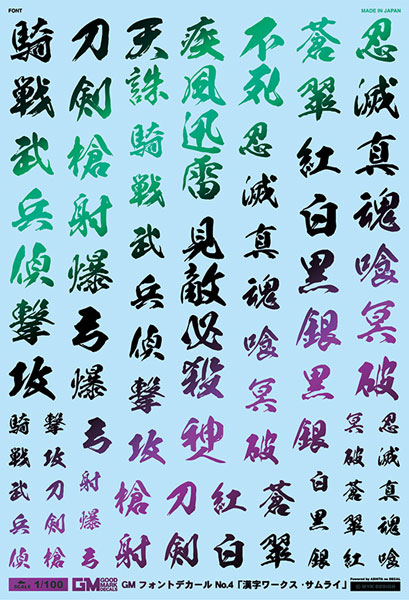 FONT
MADE IN JAPAN
忍滅真魂喰冥破
蒼翠紅白黒銀黒銀
不死忍滅真魂喰冥破
疾風迅雷見敵必殺神
天誅騎戦武兵偵撃攻
刀剣槍射爆弓爆弓
騎戦武兵偵撃攻
忍滅真魂喰
冥破蒼翠紅
白黒銀
蒼翠
紅白
刀剣
槍射
射爆弓
撃攻刀剣槍
騎戦武兵偵
SCALE 1/100
GM GOOD MARK DECALS
GM フォントデカール No.4「漢字ワークス・サムライ」